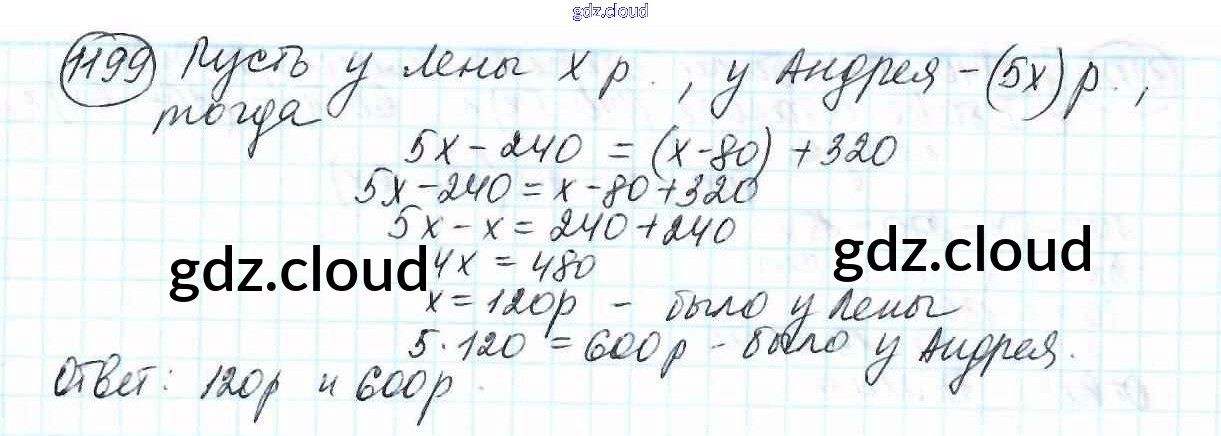 gdz.cloud
1199 Пусть у Лены х р., у Андрея - (5х) р.,
тогда
5х - 240 = (х - 80) + 320
5х - 240 = х - 80 + 320
5х - х = 240 + 240
4х = 480
gdz.cloud
gdz.cloud
х = 120р - было у Лены
5 · 120 = 600р - было у Андрея.
Ответ: 120р и 600р.